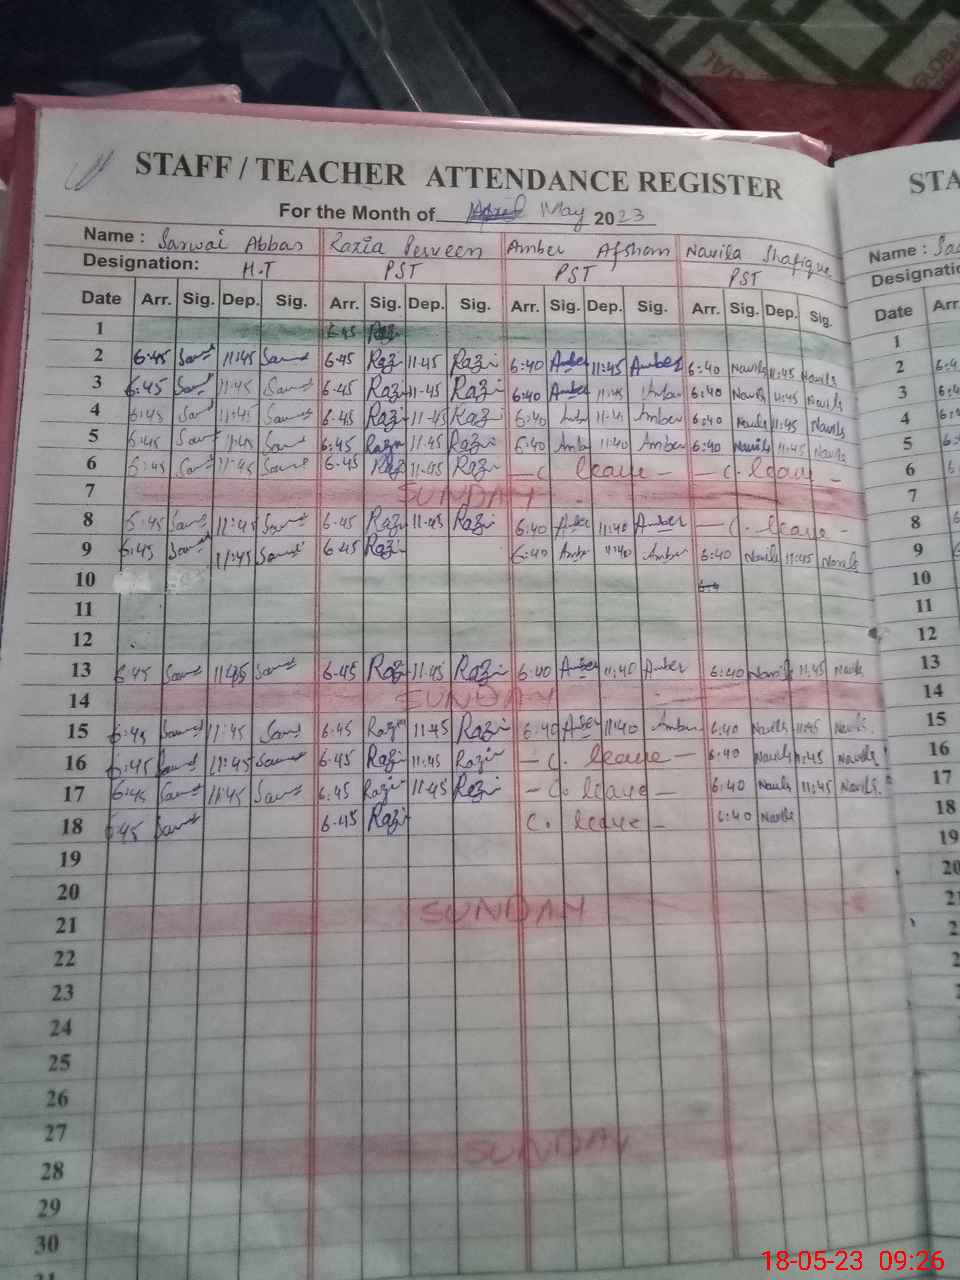 STAFF / TEACHER ATTENDANCE REGISTER
For the Month of May 2023
Name : Sarwai Abbas Razia Perveen Amber Afsham Navila Shafique
Designation: H.T PST PST PST
Date Arr. Sig. Dep. Sig. Arr. Sig. Dep. Sig. Arr. Sig. Dep. Sig. Arr. Sig. Dep. Sig.
1 6:45 Razi
2 6:45 11:45 6:45 Razi 11:45 Razi 6:40 Amber 11:45 Amber 6:40 Navils 11:45 Navils
3 6:45 11:45 6:45 Razi 11:45 Razi 6:40 Amber 11:45 Amber 6:40 Navils 11:45 Navils
4 6:45 11:45 6:45 Razi 11:45 Razi 6:40 11:45 Amber 6:40 Navils 11:45 Navils
5 6:45 11:45 6:45 Razi 11:45 Razi 6:40 Amber 11:40 Amber 6:40 Navils 11:45 Navils
6 6:45 11:45 6:45 Razi 11:45 Razi - C. leave - - C. leave -
7 SUNDAY
8 6:45 11:45 6:45 Razi 11:45 Razi 6:40 Amber 11:40 Amber - C. leave -
9 6:45 11:45 6:45 Razi 6:40 Amber 11:40 Amber 6:40 Navils 11:45 Navils
10
11
12
13 6:45 11:45 6:45 Razi 11:45 Razi 6:40 Amber 11:40 Amber 6:40 Navils 11:45 Navils
14 SUNDAY
15 6:45 11:45 6:45 Razi 11:45 Razi 6:40 Amber 11:40 Amber 6:40 Navils 11:45 Navils
16 6:45 11:45 6:45 Razi 11:45 Razi - C. leave - 6:40 Navils 11:45 Navils
17 6:45 11:45 6:45 Razi 11:45 Razi - C. leave - 6:40 Navils 11:45 Navils
18 6:45 6:45 Razi C. leave - 6:40 Navils
19
20
21 SUNDAY
22
23
24
25
26
27
28 SUNDAY
29
30
31
STA
Name :
Designatio
Date Arr.
1
2
3
4
5
6
7
8
9
10
11
12
13
14
15
16
17
18
19
20
18-05-23 09:26